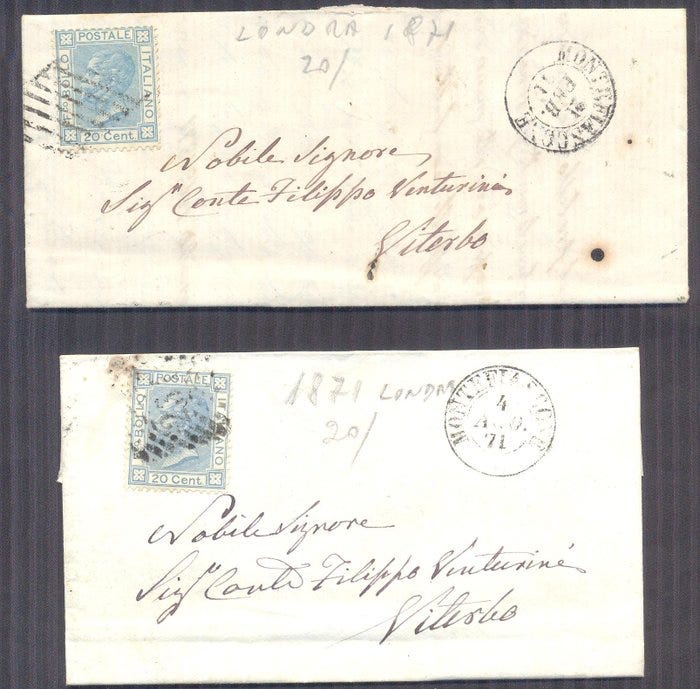 FRANCO BOLLO
POSTALE
ITALIANO
20 Cent
LONDRA 1871
20/
MONTEFIASCONE
FEB.
71
Nobile Signore
Sig.r Conte Filippo Venturini
Viterbo
BOLLO
POSTALE
ITALIANO
20 Cent
1871 LONDRA
20/
MONTEFIASCONE
4
AGO.
71
Nobile Signore
Sig.r Conte Filippo Venturini
Viterbo